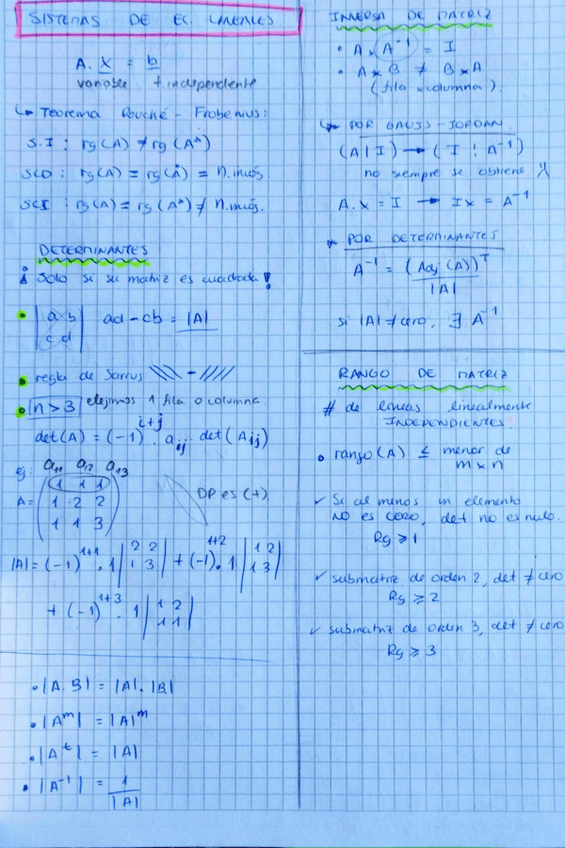 SISTEMAS DE EC LINEALES
A. X = b
variable t. independiente
↳ Teorema Rouché - Frobenius:
S.I : rg(A) ≠ rg(A*)
SCD : rg(A) = rg(A*) = n.incós.
SCI : rg(A) = rg(A*) ≠ n.incós.
DETERMINANTES
¡ Solo si su matriz es cuadrada !
• |a b| ad - cb = |A|
|c d|
• regla de Sarrus \\\\ - ////
• n > 3 elejimos 1 fila o columna
det(A) = (-1)^{i+j} . a_{ij} . det(A_{ij})
ej: a₁₁ a₁₂ a₁₃
1 1 1
A = 1 2 2
1 1 3
DP es (+)
|A| = (-1)^{1+1} . 1 |2 2| + (-1)^{1+2} . 1 |1 2|
|1 3| |1 3|
+ (-1)^{1+3} . 1 |1 2|
|1 1|
• |A.B| = |A|.|B|
• |A^m| = |A|^m
• |A^t| = |A|
• |A^{-1}| = 1
|A|
INVERSA DE MATRIZ
• A x A^{-1} = I
• A x B ≠ B x A
(fila x columna).
↳ POR GAUSS - JORDAN
(A | I) → ( I ¦ A^{-1})
no siempre se obtiene
A. X = I → IX = A^{-1}
POR DETERMINANTES
A^{-1} = (Adj(A))^T
|A|
si |A| ≠ cero, ∃ A^{-1}
RANGO DE MATRIZ
# de lineas linealmente
INDEPENDIENTES
• rango(A) ≤ menor de
m x n
✓ Si al menos un elemento
NO es CERO, det no es nulo.
Rg ≥ 1
✓ submatriz de orden 2, det ≠ cero
Rg ≥ 2
✓ submatriz de orden 3, det ≠ cero
Rg ≥ 3